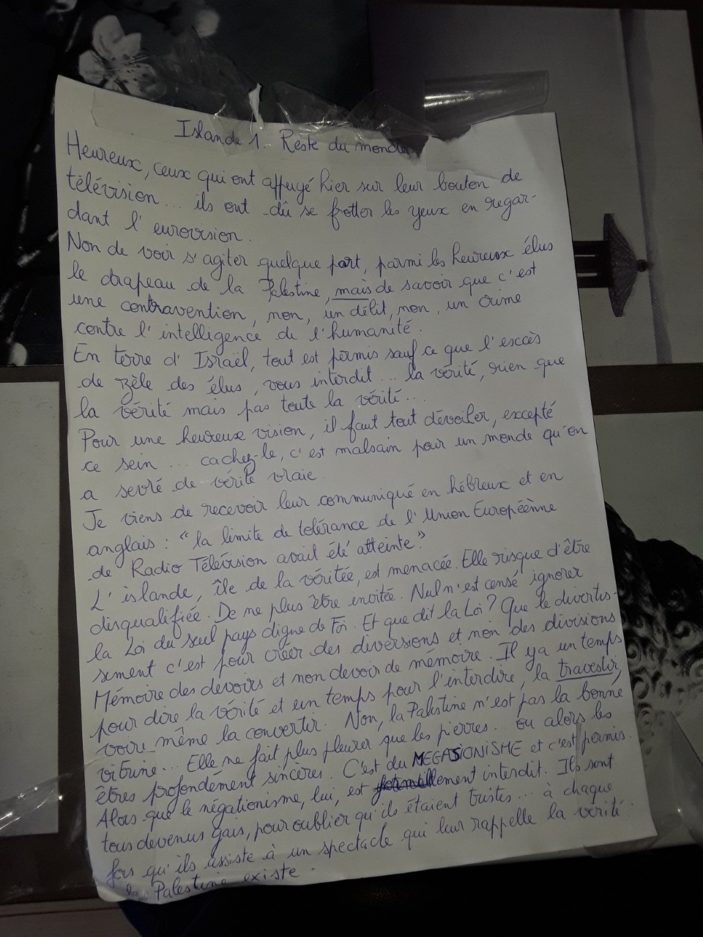 Islande 1. Reste du monde
Heureux, ceux qui ont appuyé hier sur leur bouton de
télévision... ils ont dû se frotter les yeux en regar-
dant l'eurovision.
Non de voir s'agiter quelque part, parmi les heureux élus
le drapeau de la Palestine, mais de savoir que c'est
une contravention, non, un délit, non, un crime
contre l'intelligence de l'humanité.
En terre d'Israël, tout est permis sauf ce que l'excès
de zèle des élus, vous interdit... la vérité, rien que
la vérité mais pas toute la vérité...
Pour une heureuse vision, il faut tout dévoiler, excepté
ce sein... cachez-le, c'est malsain pour un monde qu'on
a sevré de vérité vraie.
Je viens de recevoir leur communiqué en hébreux et en
anglais : "la limite de tolérance de l'Union Européènne
de Radio Télévision avait été atteinte."
L'islande, île de la véritée, est menacée. Elle risque d'être
disqualifiée. De ne plus être invitée. Nul n'est censé ignorer
la Loi du seul pays digne de Foi. Et que dit la Loi? Que le divertis-
sement c'est pour créer des diversions et non des divisions
Mémoire des devoirs et non devoir de mémoire. Il y a un temps
pour dire la vérité et un temps pour l'interdire, la travestir,
voire même la convertir. Non, la Palestine n'est pas la bonne
vitrine... Elle ne fait plus pleurer que les pierres... ou alors les
êtres profondément sincères. C'est du MEGASIONISME et c'est permis.
Alors que le négationisme, lui, est formellement interdit. Ils sont
tous devenus gais, pour oublier qu'ils étaient tristes... à chaque
fois qu'ils assiste à un spectacle qui leur rappelle la vérité.
la Palestine existe.